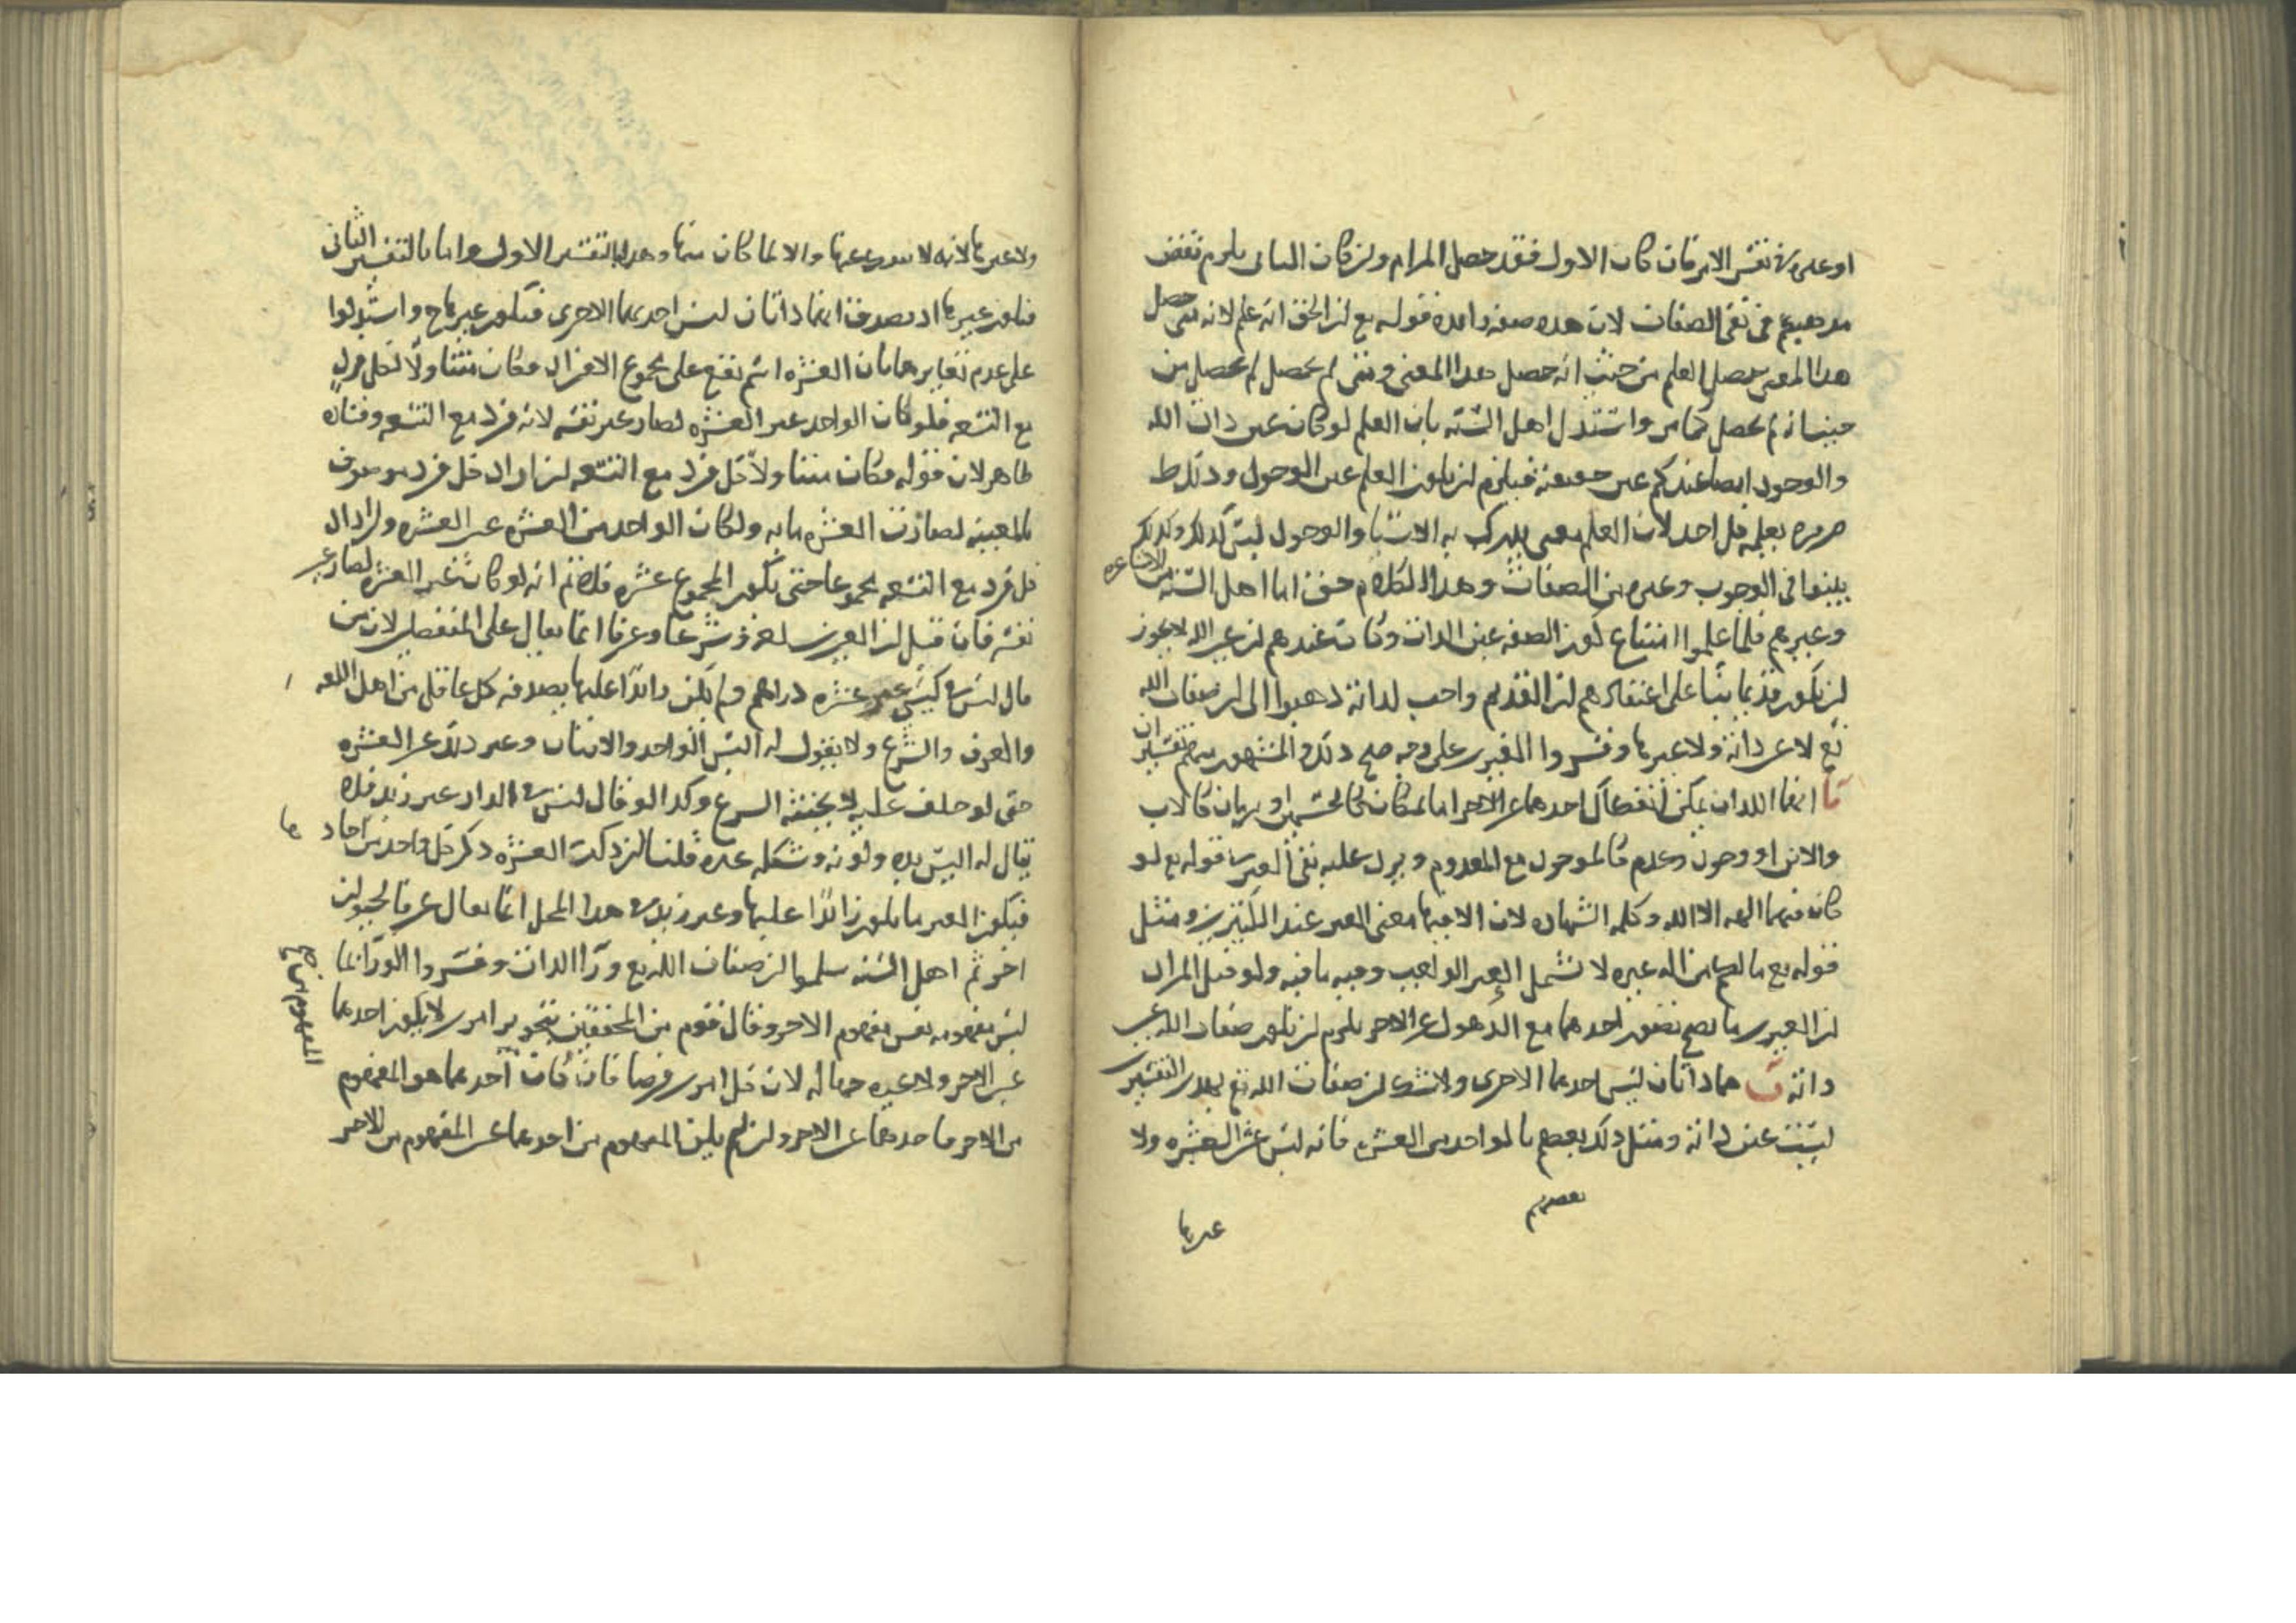 او على نفس الامر فان كان الاول فقد حصل المرام وان كان الثانى يلزم نقض
مذهبهم فى نفى الصفات لان هذه صفه واحده فقوله مع ان الحق انه علم لانه متى حصل
هذا المعنى حصل العلم من حيث انه حصل هذا المعنى ومتى لم يحصل لم يحصل من
حيث انه لم يحصل كما مر واستدل اهل السنه بان العلم لو كان عين ذات الله
والوجود ايضا عندكم عين حقيقته فيلزم ان يكون العلم عين الوجود وذلك ط
ضروره يعلمه كل احد لان العلم معنى يدرك به الاشيا والوجود ليس كذلك وكذلك
بينوا فى الوجوب وغيره من الصفات وهذا الكلام حق اما اهل السنه من الاشاعره
وغيرهم فلما علموا امتناع كون الصفه عين الذات وكانت عندهم ان غير الله لا يجوز
ان يكون قديما بنا على اعتقادهم ان القديم واجب لذاته ذهبوا الى ان صفات الله
تع لا عين ذاته ولا غيرها وفسروا الغيرين على وجه صح ذلك والمشهور منهم تفسيران
آ انهما اللذان يمكن انفصال احدهما عن الاخر اما بمكان كالجسمين او بزمان كالاب
والابن او وجود وعدم كالموجود مع المعدوم ويدل عليه نفى الغير قوله تع لو
كان فيهما الهه الا الله وكلمه الشهاده لان الا فيها معنى الغير عند الكثيرين ومثل
قوله تع ما لكم من اله غيره لا تشمل الغير الواجب وفيه ما فيه ولو قيل المراد
ان الغيرين ما يصح تصور احدهما مع الذهول عن الاخر يلزم ان يكون صفات الله غير
ذاته ب هما ذاتان ليس احدهما الاخرى ولا شك ان صفات الله تع بهذين التفسيرين
ليست عين ذاته ومثل ذلك بعضهم بالواحد من العشره فانه ليس عين العشره ولا
بعضهم
غيرها
ولا غيرها لانه لا ينفرد عنها والا لما كان منها وهذا بالتفسير الاول واما بالتفسير الثانى
فيكون غيرها اذ يصدق انهما ذاتان ليس احديهما الاخرى فيكون غيرها ح واستدلوا
على عدم تغايرهما بان العشره اسم تقع على مجموع الافراد فكان متناولا لكل فرد
مع التسعه فلو كان الواحد غير العشره لصار غير نفسه لانه فرد مع التسعه وفساده
ظاهر لان قوله فكان متناولا كل فرد مع التسعه ان اراد كل فرد موصوف
بالمعيه لصارت العشره مايه ولكان الواحد من العشره عين العشره وان اراد ان
كل فرد مع التسعه مجموعا حتى يكون المجموع عشره فلا نم انه لو كان غير العشره لصار غير
نفسه فان قيل ان الغيرين لغه وشرعا وعرفا انما يقال على المنفصلين لان من
قال ليس فى كيسى غير عشره دراهم ولم يكن زائدا عليها يصدقه كل عاقل من اهل اللغه
والعرف والشرع ولا يقول له اليس الواحد والاثنان وغير ذلك غير العشره
حتى لو حلف عليه لا يحنثه الشرع وكذا لو قال ليس فى الدار غير زيد فلا
يقال له اليس يده ولونه وشكله غيره قلنا ان ذكر العشره ذكر كل واحد من احادها
فيكون الغير ما يكون زائدا عليها وغير زيد فى هذا المحل انما يقال عرفا لحيوان
اخر ثم اهل السنه سلموا ان صفات الله تع ورا الذات وفسروا الورا بما
ليس مفهومه نفس مفهوم الاخر وقال قوم من المحققين تجويز امرين لا يكون احدهما
عين الاخر ولا غيره جهاله لان كل امرين فرضا فان كان احدهما هو المفهوم
من الاخر فاحدهما عين الاخر وان لم يكن المفهوم من احدهما عين المفهوم من الاخر
المفهوم من صح